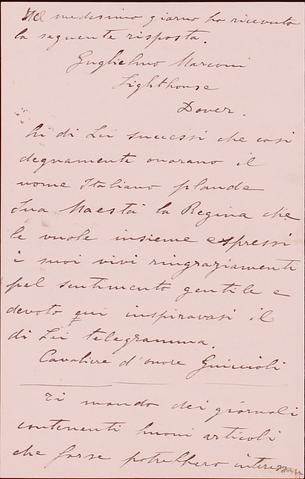 Nel medesimo giorno ho ricevuto
la seguente risposta.
Guglielmo Marconi
Lighthouse
Dover.
Ai di Lei successi che così
degnamente onorano il
nome Italiano plaude
Sua Maestà la Regina che
le vuole insieme espressi
i suoi vivi ringraziamenti
pel sentimento gentile e
devoto cui inspiravasi il
di Lei telegramma.
Cavaliere d'onore Guiccioli
Ti mando dei giornali
contenenti buoni articoli
che forse potrebbero interessar